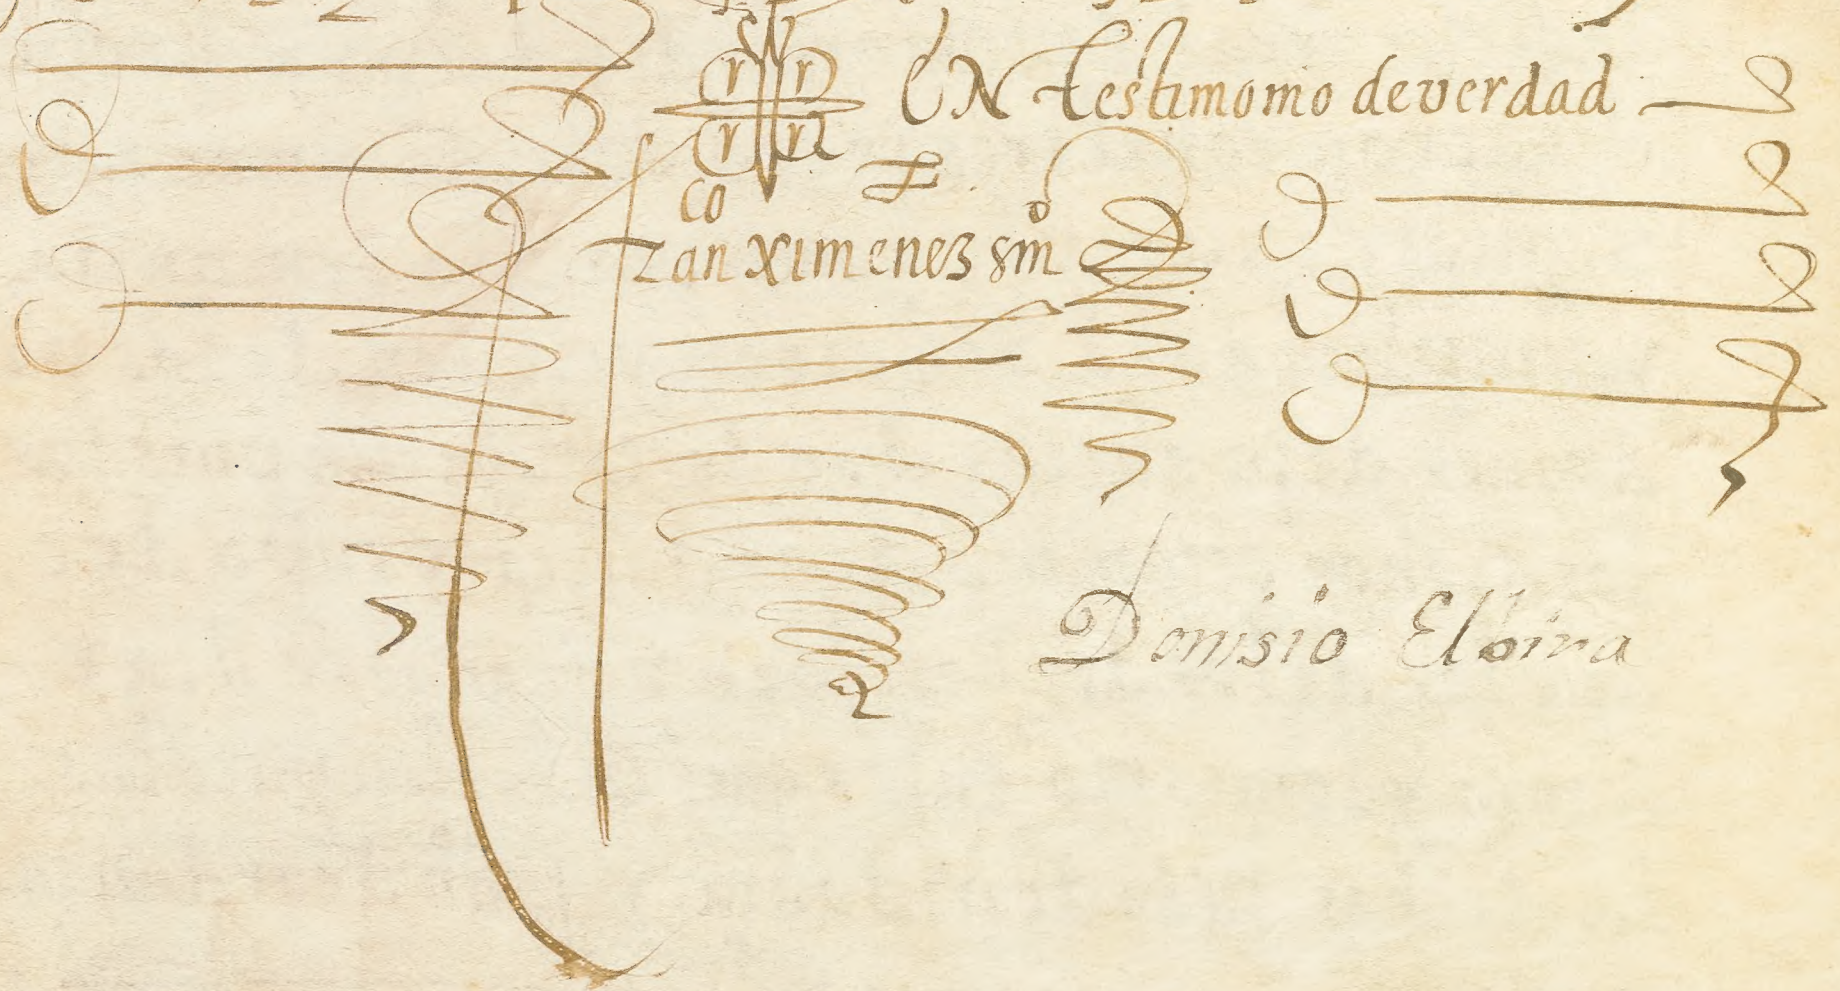 EN testimonio de verdad
co
Fran Ximenez ssno
Donisio Elvira